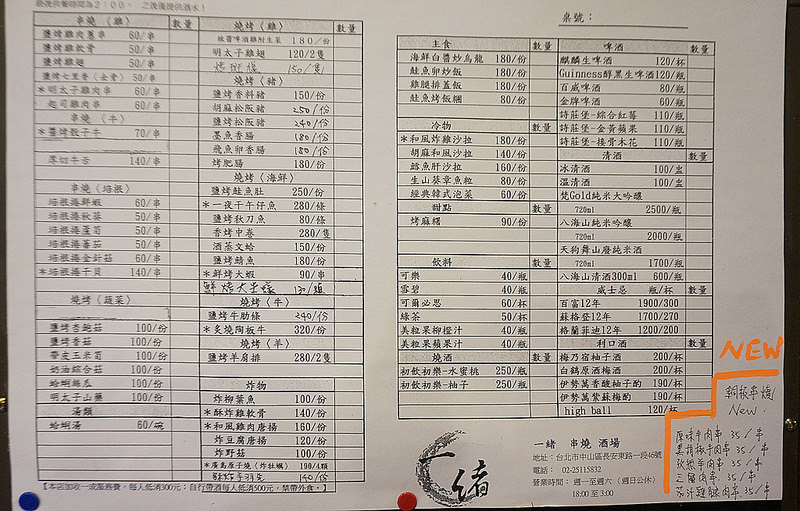 最後供餐時間為2:00,
串燒（雞） 數量
鹽烤雞肉蔥串 60/串
鹽烤雞軟骨 50/串
鹽烤雞翅 50/串
鹽烤七里香（去骨） 50/串
*明太子雞肉串 60/串
起司雞肉串 60/串
串燒（牛）
*醬烤骰子牛 70/串
厚切牛舌 140/串
串燒（培根）
培根捲鮮蝦 60/串
培根捲秋葵 50/串
培根捲蘆筍 50/串
培根捲蕃茄 50/串
培根捲金針菇 60/串
*培根捲干貝 140/串
燒烤（蔬菜）
鹽烤杏鮑菇 100/份
鹽烤香菇 100/份
帶皮玉米筍 100/份
奶油綜合菇 100/份
蛤蜊絲瓜 100/份
明太子山藥 100/份
湯類
蛤蜊湯 60/碗
燒烤（雞） 數量
辣醬啤酒雞附生菜 180/份
明太子雞翅 120/2隻
150/隻
燒烤（豬）
鹽烤香料豬 150/份
胡麻松阪豬 250/份
鹽烤松阪豬 240/份
墨魚香腸 180/份
飛魚卵香腸 180/份
烤肥腸 180/份
燒烤（海鮮）
鹽烤鮭魚肚 250/份
*一夜干午仔魚 280/條
鹽烤秋刀魚 80/條
香烤中卷 280/隻
酒蒸文蛤 150/份
鹽烤鯖魚 180/份
*鮮烤大蝦 90/串
130/顆
燒烤（牛）
鹽烤牛肋條 240/份
*炙燒陶板牛 320/份
燒烤（羊）
鹽烤羊肩排 280/2隻
炸物
炸柳葉魚 100/份
*酥炸雞軟骨 140/份
*和風雞肉唐揚 160/份
炸豆腐唐揚 120/份
炸野菇 100/份
*廣島原子燒（炸牡蠣） 190/4顆
140/份
【本店加收一成服務費，每人低消300元；自行帶酒每人低消500元，禁帶外食。】
桌號：
主食 數量
海鮮白醬炒烏龍 180/份
鮭魚卵炒飯 180/份
雞腿排蓋飯 180/份
鮭魚烤飯糰 80/份
冷物 數量
*和風炸雞沙拉 180/份
胡麻和風沙拉 140/份
鱈魚肝沙拉 160/份
生山葵章魚粒 80/份
經典韓式泡菜 60/份
甜點 數量
烤麻糬 90/份
飲料 數量
可樂 40/瓶
雪碧 40/瓶
可爾必思 60/杯
綠茶 50/杯
美粒果柳橙汁 40/瓶
美粒果蘋果汁 40/瓶
燒酒 數量
初飲初樂-水蜜桃 250/瓶
初飲初樂-柚子 250/瓶
啤酒 數量
麒麟生啤酒 120/杯
Guinness醇黑生啤酒120/瓶
百威啤酒 80/瓶
金牌啤酒 60/瓶
詩莊堡-綜合紅莓 110/瓶
詩莊堡-金黃蘋果 110/瓶
詩莊堡-接骨木花 110/瓶
清酒 數量
冰清酒 100/盅
溫清酒 100/盅
梵Gold純米大吟釀
720ml 2500/瓶
八海山純米吟釀
720ml 2000/瓶
天狗舞山廢純米酒
720ml 1700/瓶
八海山清酒300ml 600/瓶
威士忌 瓶/杯 數量
百富12年 1900/300
蘇格登12年 1700/270
格蘭菲迪12年 1200/200
利口酒 數量
梅乃宿柚子酒 200/杯
白鶴原酒梅酒 200/杯
伊勢萬香酸柚子酌 190/杯
伊勢萬紫蘇梅酌 190/杯
high ball 120/杯
一緒
一緒 串燒 酒場
地址：台北市中山區長安東路一段46號
電話： 02-25115832
營業時間：週一至週六（週日公休）
18:00 至 3:00
NEW
銅板串燒
New.
原味牛肉串 35/串
黑胡椒牛肉串 35/串
孜然羊肉串 35/串
三角肉串 35/串
茄汁雞腿肉串 35/串